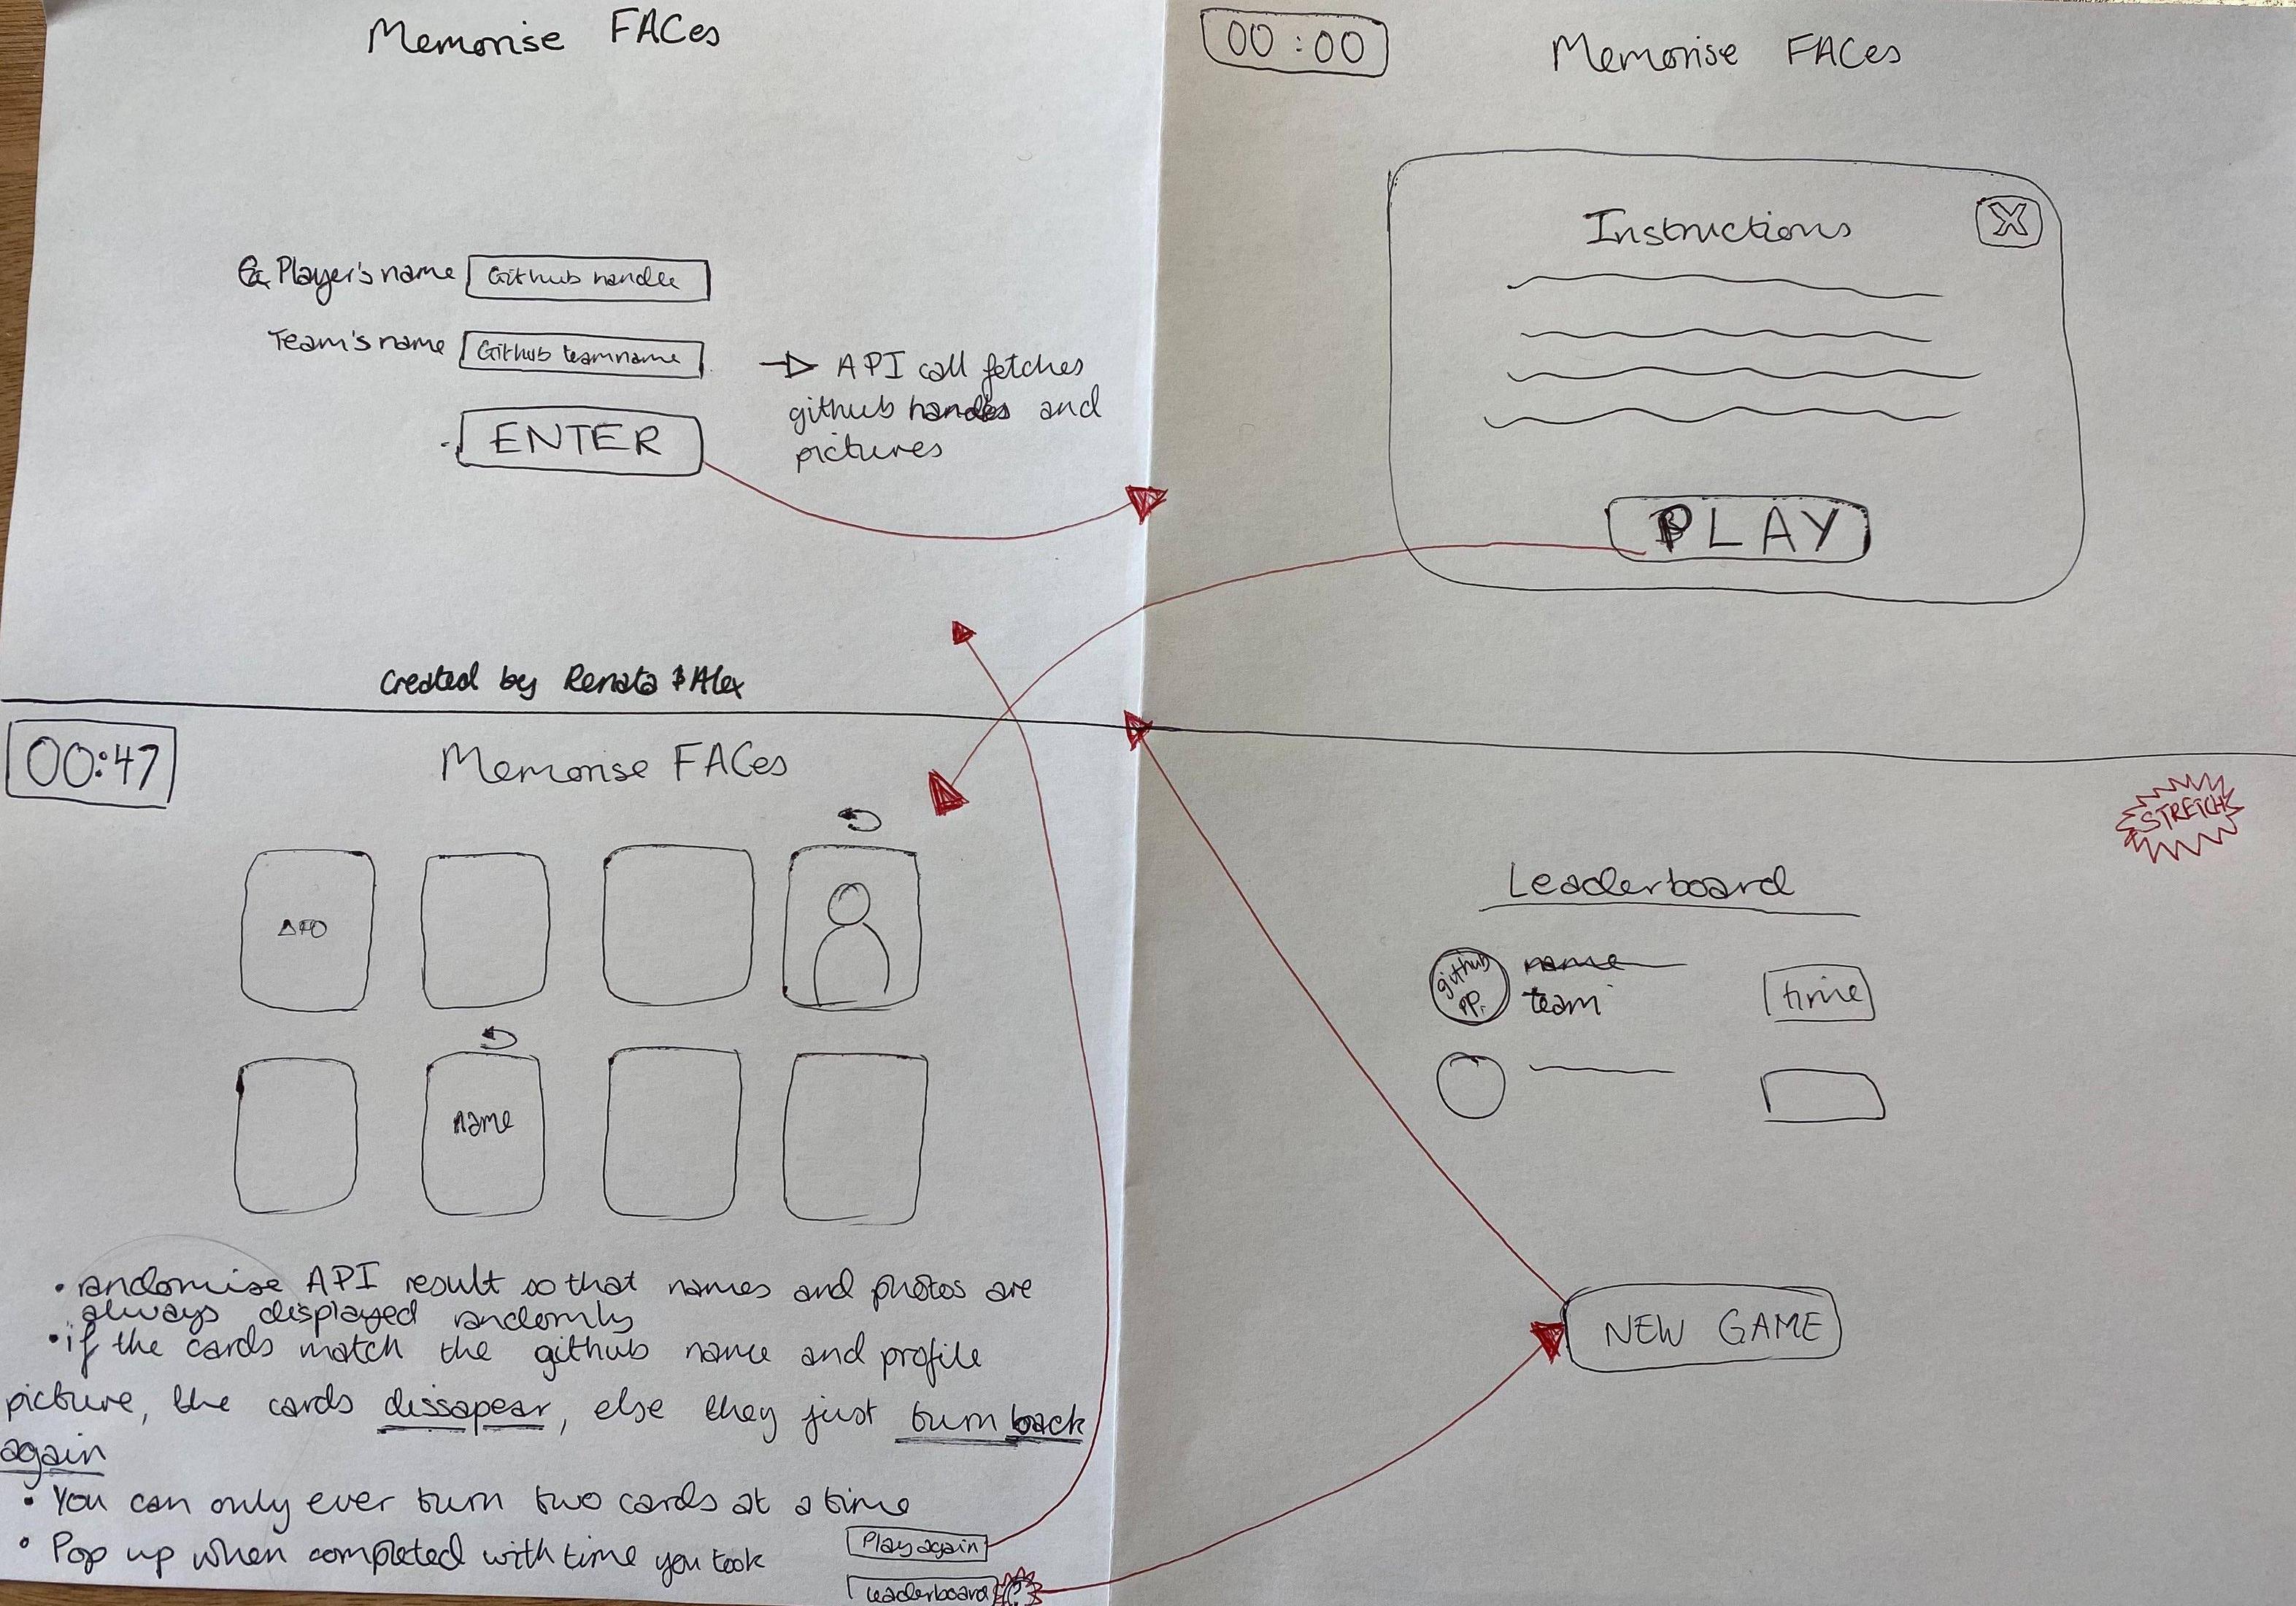 Memorise FACes
Player's name
Github handle
Team's name
Github teamname
ENTER
API call fetches
github handles and
pictures
Created by Renata & Alex
00:00
Memorise FACes
Instructions
X
PLAY
00:47
Memorise FACes
name
• randomise API result so that names and photos are
always displayed randomly
• if the cards match the github name and profile
picture, the cards dissapear, else they just turn back
again
• You can only ever turn two cards at a time
• Pop up when completed with time you took
Play again
Leaderboard
STRETCH
Leaderboard
github
PP.
name
team
time
NEW GAME